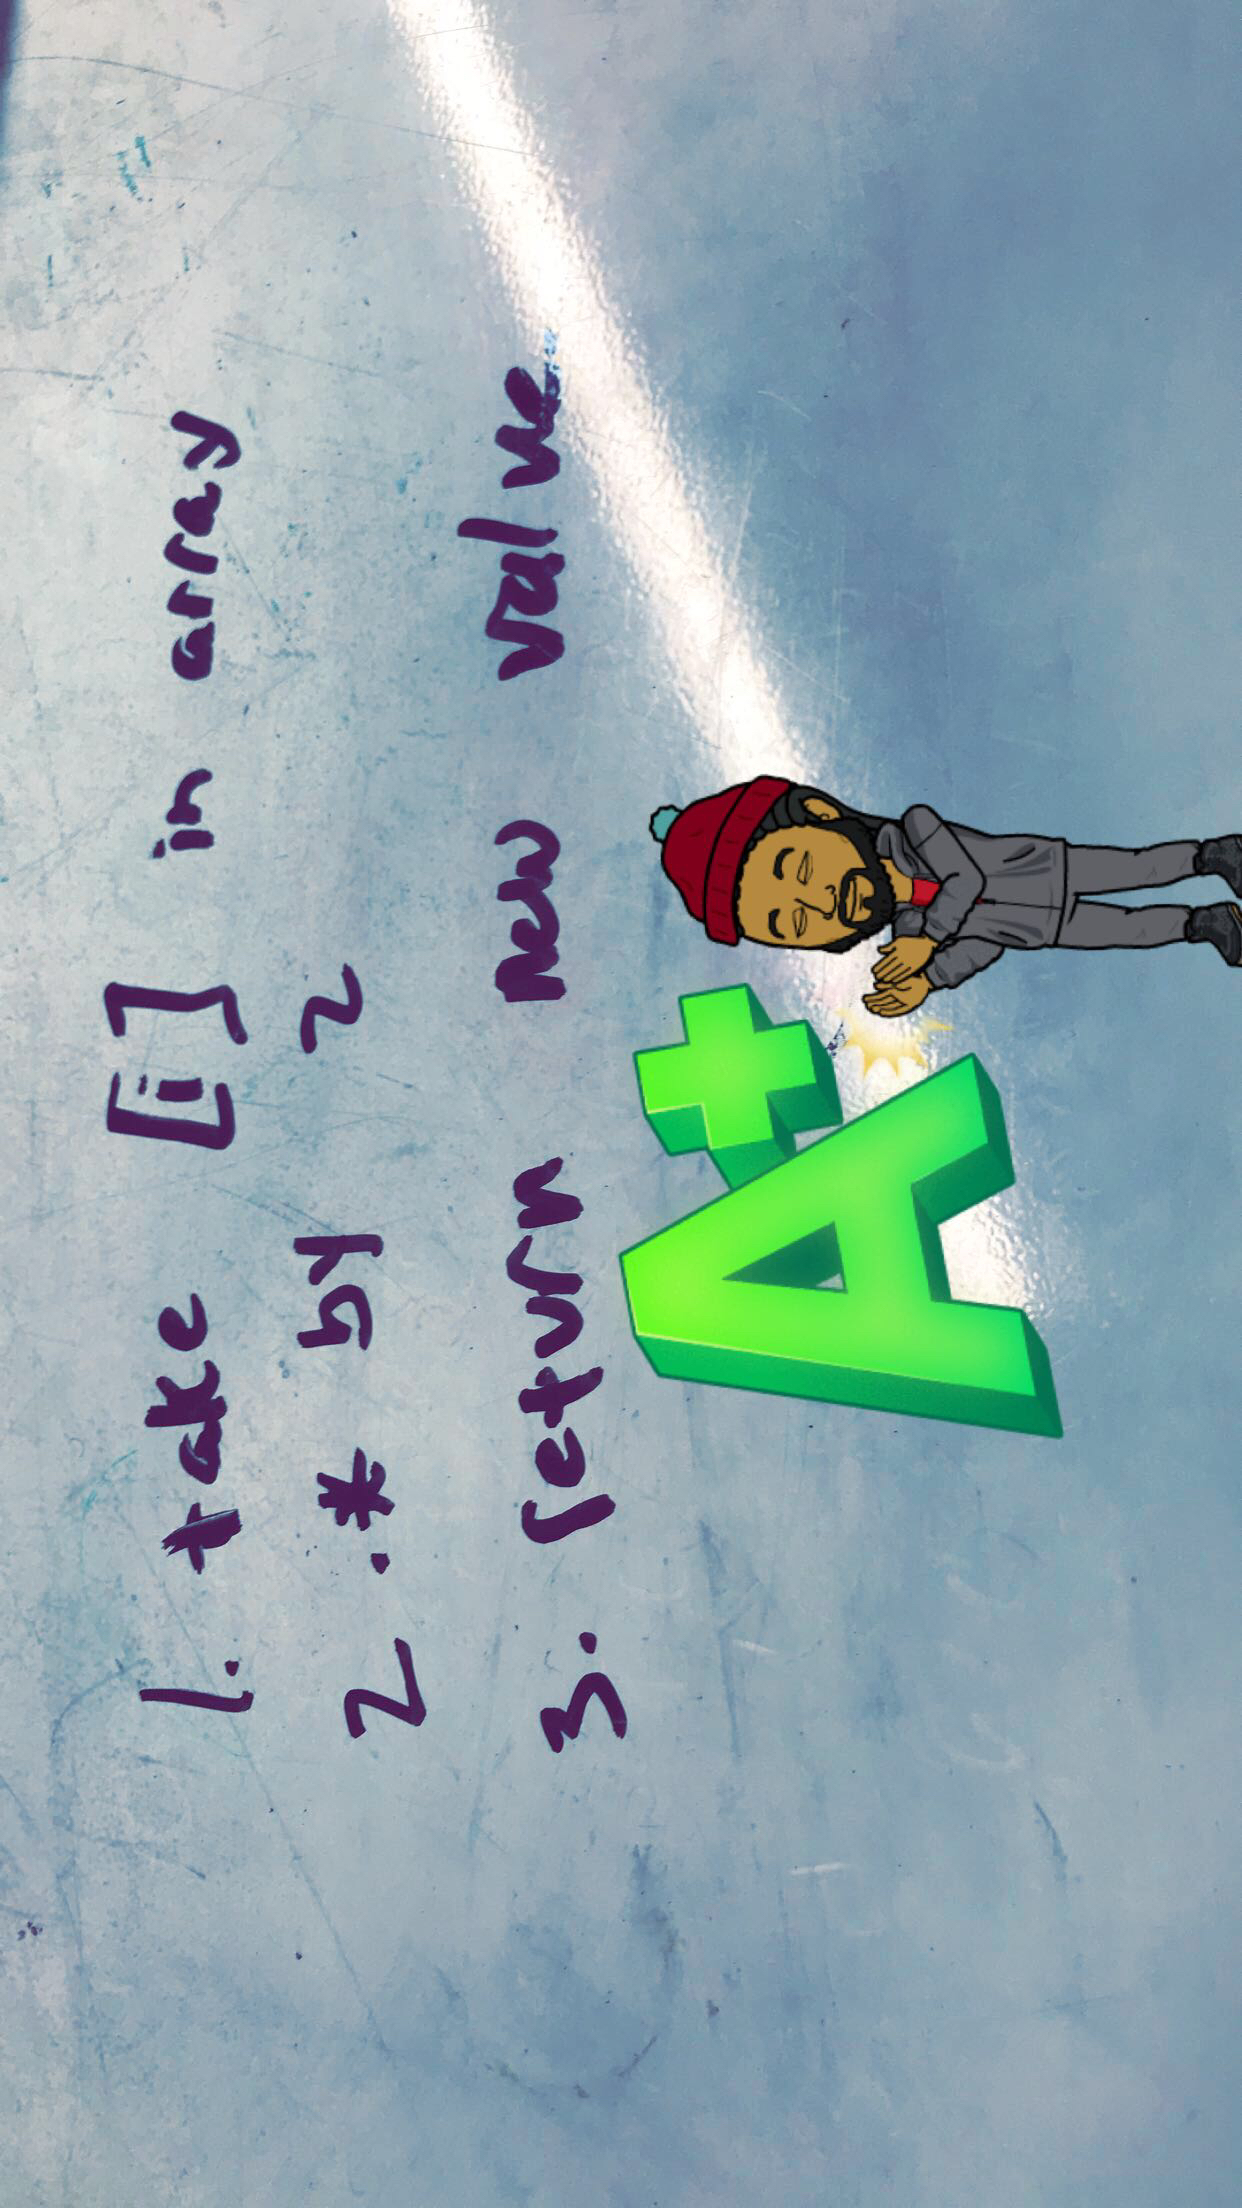 1. take [i] in array
2. * by 2
3. return new value
A+